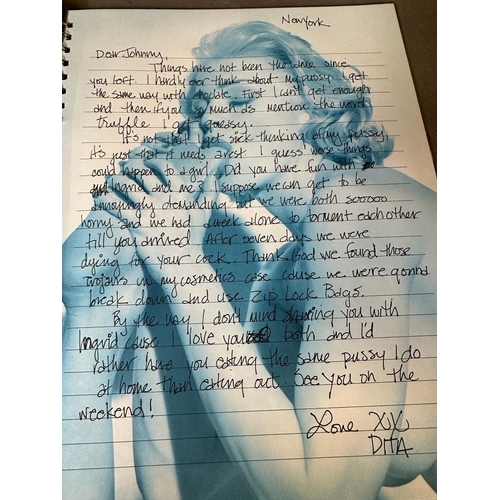 New York
Dear Johnny,
Things have not been the same since
you left. I hardly ever think about my pussy. I get
the same way with chocolate. First I can't get enough
and then if you so much as mention the word
truffle I get queasy.
It's not that I get sick thinking of my pussy
it's just that it needs a rest. I guess worse things
could happen to a girl. Did you have fun with
Ingrid and me? I suppose we can get to be
annoyingly demanding but we were both sooooo
horny and we had been alone to torment each other
till you arrived. After seven days we were
dying for your cock. Thank God we found those
trojans in my cosmetics case cause we were gonna
break down and use Zip Lock Bags.
By the way I dont mind sharing you with
Ingrid cause I love you both and I'd
rather have you eating the same pussy I do
at home than eating out. See you on the
weekend!
Love XX
DITA